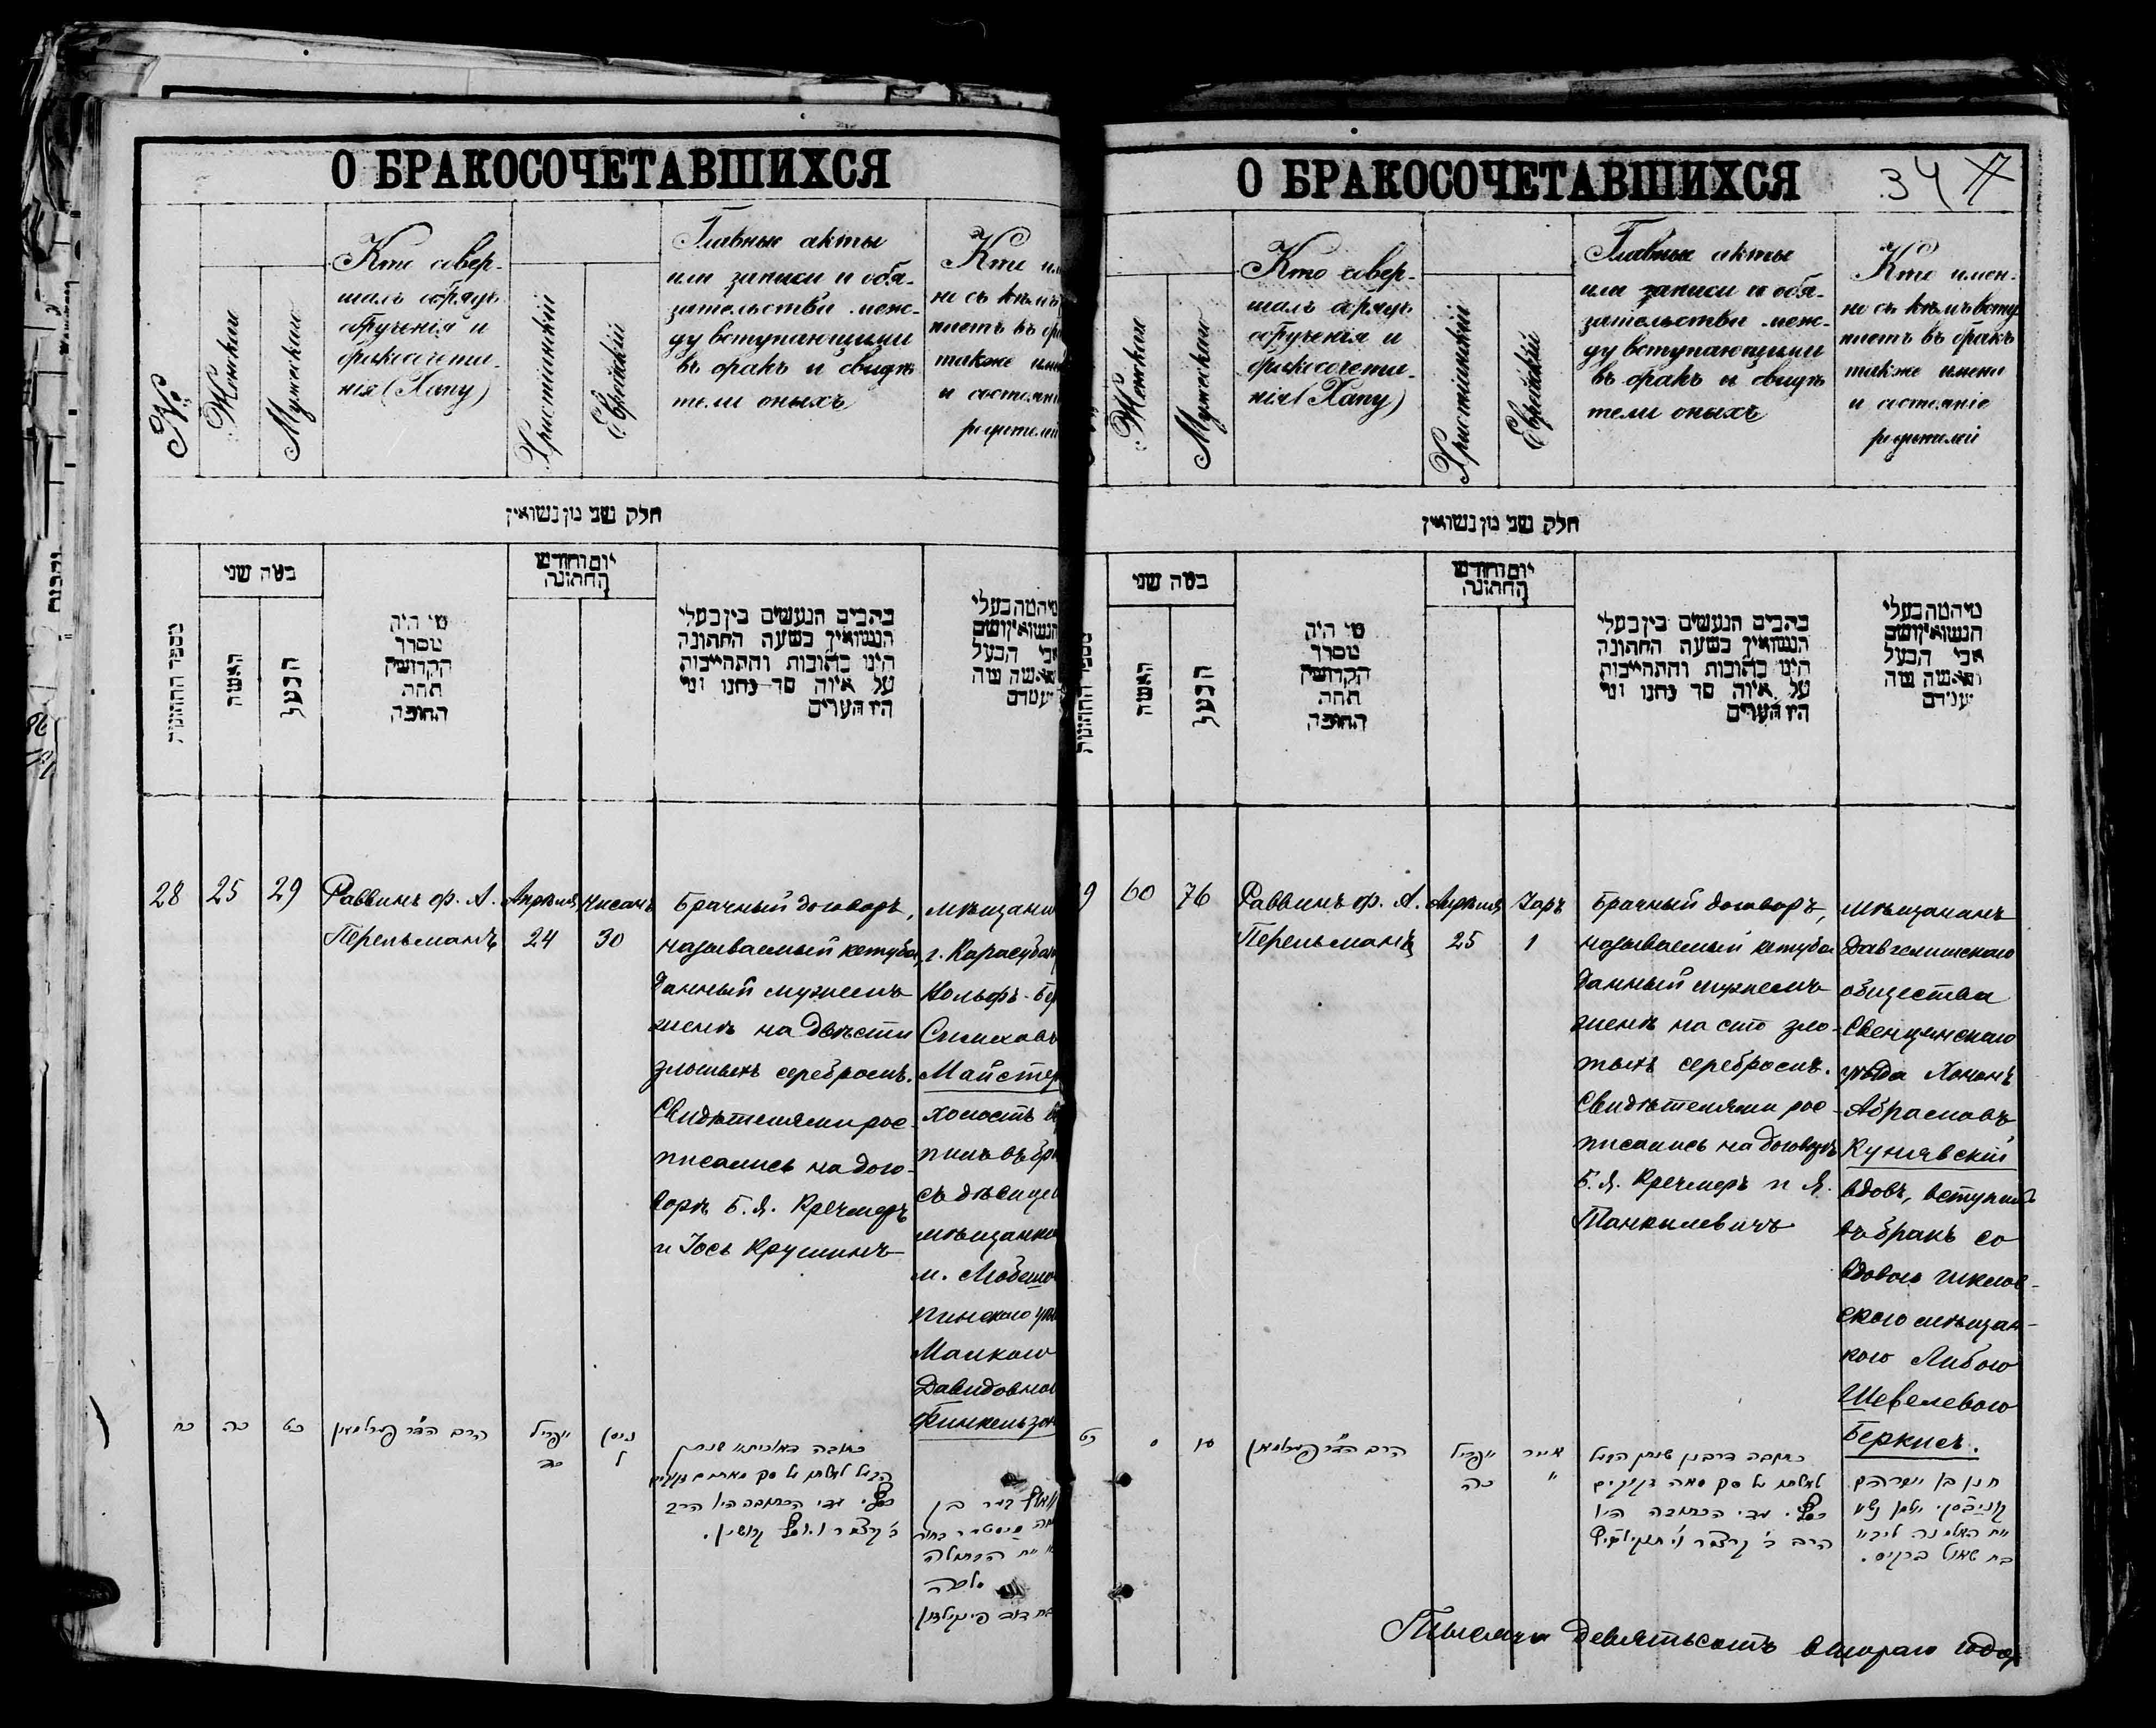 О БРАКОСОЧЕТАВШИХСЯ
№
Женскаго
Мужескаго
Кто совер-
шалъ обрядъ
обрученія и
бракосочета-
нія (Хапу)
Христіанскій
Еврейскій
Главные акты
или записи и обя-
зательства меж-
ду вступающими
въ бракъ и свидѣ
тели оныхъ
Кто им
но съ кѣмъ
паетъ въ бра
также име
и состояні
родителей
חלק שני מן נשואין
מספר החתונות
כמה שני
האשה
הבעל
מי היה
מסדר
הקדושין
תחת
החופה
יום וחודש
החתונה
כתבים הנעשים בין בעלי
הנשואין בשעה החתונה
היינו כתובות והתחייבות
על איזה סך נתנו ומי
היו העדים
מיהמה בעלי
הנשואין ושם
אבי הבעל
והאשה מה
עמדם
28
25
29
Раввинъ ф. А.
Перельманъ
Апрѣля
24
Нисанъ
30
Брачный договоръ,
называемый кетуба,
данный мужемъ
женѣ на двѣсти
злотыхъ серебромъ.
Свидѣтелями рос-
писались на дого-
ворѣ Б. Я. Кречмеръ
и Іось Крушинъ
мѣщани
г. Карасубаз
Вольфъ-Бе
Симховъ
Майстер
холостъ вс
пилъ въ бра
съ дѣвицей
мѣщанко
м. Любешо
Пинскаго уѣ
Малкою
Давидовною
Финкельзон
כח
כה
כט
הרב הד"ר פערלמאן
אפריל
כד
ניסן
ל
כסף. עדי הכתובה היו הרב
ב' קרצמר ויוסף קרושין.
מלכה
בת דוד פינקילזון
О БРАКОСОЧЕТАВШИХСЯ
34
Женскаго
Мужескаго
Кто совер-
шалъ обрядъ
обрученія и
бракосочета-
нія (Хапу)
Христіанскій
Еврейскій
Главные акты
или записи и обя-
зательства меж-
ду вступающими
въ бракъ и свидѣ
тели оныхъ
Кто имен-
но съ кѣмъ всту
паетъ въ бракъ
также имена
и состояніе
родителей
חלק שני מן נשואין
מספר החתונות
כמה שני
האשה
הבעל
מי היה
מסדר
הקדושין
תחת
החופה
יום וחודש
החתונה
כתבים הנעשים בין בעלי
הנשואין בשעה החתונה
היינו כתובות והתחייבות
על איזה סך נתנו ומי
היו העדים
מיהמה בעלי
הנשואין ושם
אבי הבעל
והאשה מה
ענידם
9
60
76
Раввинъ ф. А.
Перельманъ
Апрѣля
25
Іаръ
1
Брачный договоръ,
называемый кетуба
данный мужемъ
женѣ на сто зло-
тыхъ серебромъ.
Свидѣтелями рос-
писались на договорѣ
Б. Я. Кречмеръ и Я.
Танхилевичъ
мѣщанинъ
Давгелишскаго
общества
Свенцянскаго
уѣзда Хононъ
Абрамовъ
Кунявскій
вдовъ, вступилъ
въ бракъ со
вдовою шклов-
скою мѣщан-
кою Либою
Шевелевою
Беркисъ.
כט
ס
הרב הד"ר פערלמאן
אפריל
כה
אייר
כתובה דרבנן שנתן הבעל
לאשתו על סך מאה זקוקים
כסף. עדי הכתובה היו
הרב ב' קרצמר
חנן בן אברהם
בת שאול ברקיס.
Тысяча девятьсотъ втораго года